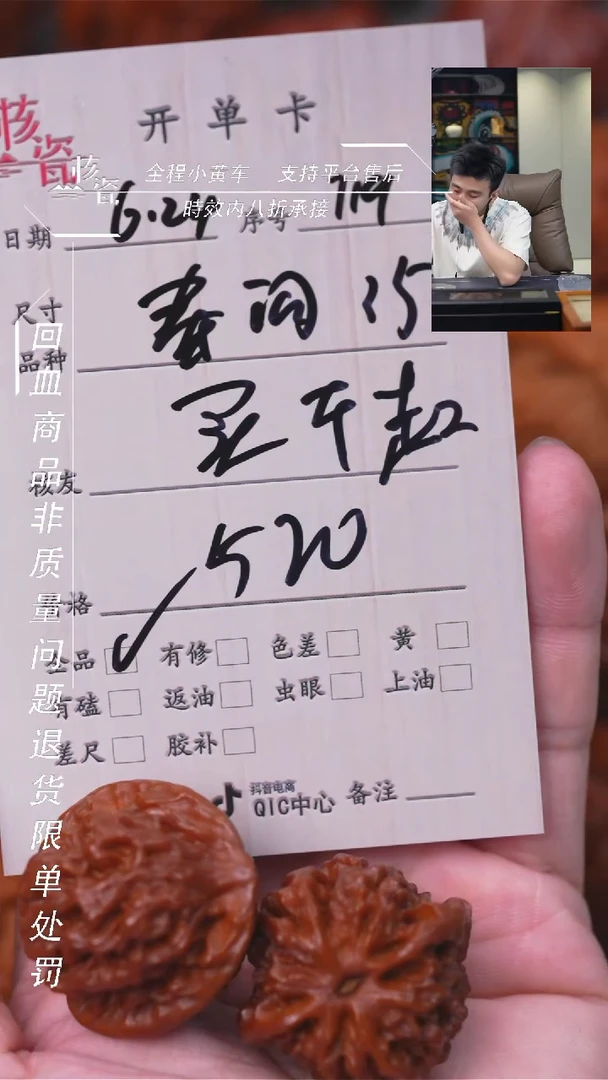 核瓷
开单卡
核瓷
全程小黄车 支持平台售后
時效内八折承接
日期 6.24 序号
尺寸
品种
核友
520
价格
全品 有修 色差 黄
有磕 返油 虫眼 上油
差尺 胶补
抖音电商
QIC中心 备注
回血商品非质量问题退货限单处罚